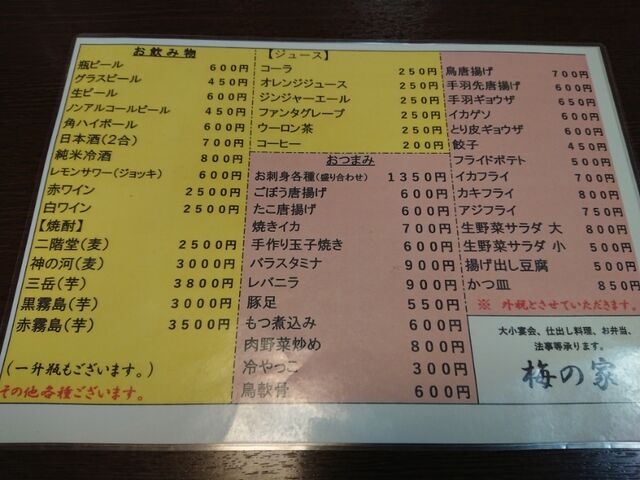 お飲み物
瓶ビール 600円
グラスビール 450円
生ビール 600円
ノンアルコールビール 450円
角ハイボール 600円
日本酒(2合) 700円
純米冷酒 800円
レモンサワー(ジョッキ) 600円
赤ワイン 2500円
白ワイン 2500円
【焼酎】
二階堂(麦) 2500円
神の河(麦) 3000円
三岳(芋) 3800円
黒霧島(芋) 3000円
赤霧島(芋) 3500円
(一升瓶もございます。)
その他各種ございます。
【ジュース】
コーラ 250円
オレンジジュース 250円
ジンジャーエール 250円
ファンタグレープ 250円
ウーロン茶 250円
コーヒー 200円
おつまみ
お刺身各種(盛り合わせ) 1350円
ごぼう唐揚げ 600円
たこ唐揚げ 600円
焼きイカ 700円
手作り玉子焼き 600円
バラスタミナ 900円
レバニラ 900円
豚足 550円
もつ煮込み 600円
肉野菜炒め 800円
冷やっこ 300円
鳥軟骨 600円
鳥唐揚げ 700円
手羽先唐揚げ 600円
手羽ギョウザ 650円
イカゲソ 600円
とり皮ギョウザ 600円
餃子 450円
フライドポテト 500円
イカフライ 700円
カキフライ 800円
アジフライ 750円
生野菜サラダ 大 800円
生野菜サラダ 小 500円
揚げ出し豆腐 500円
かつ皿 850円
※ 外税とさせていただきます。
大小宴会、仕出し料理、お弁当、
法事等承ります。
梅の家